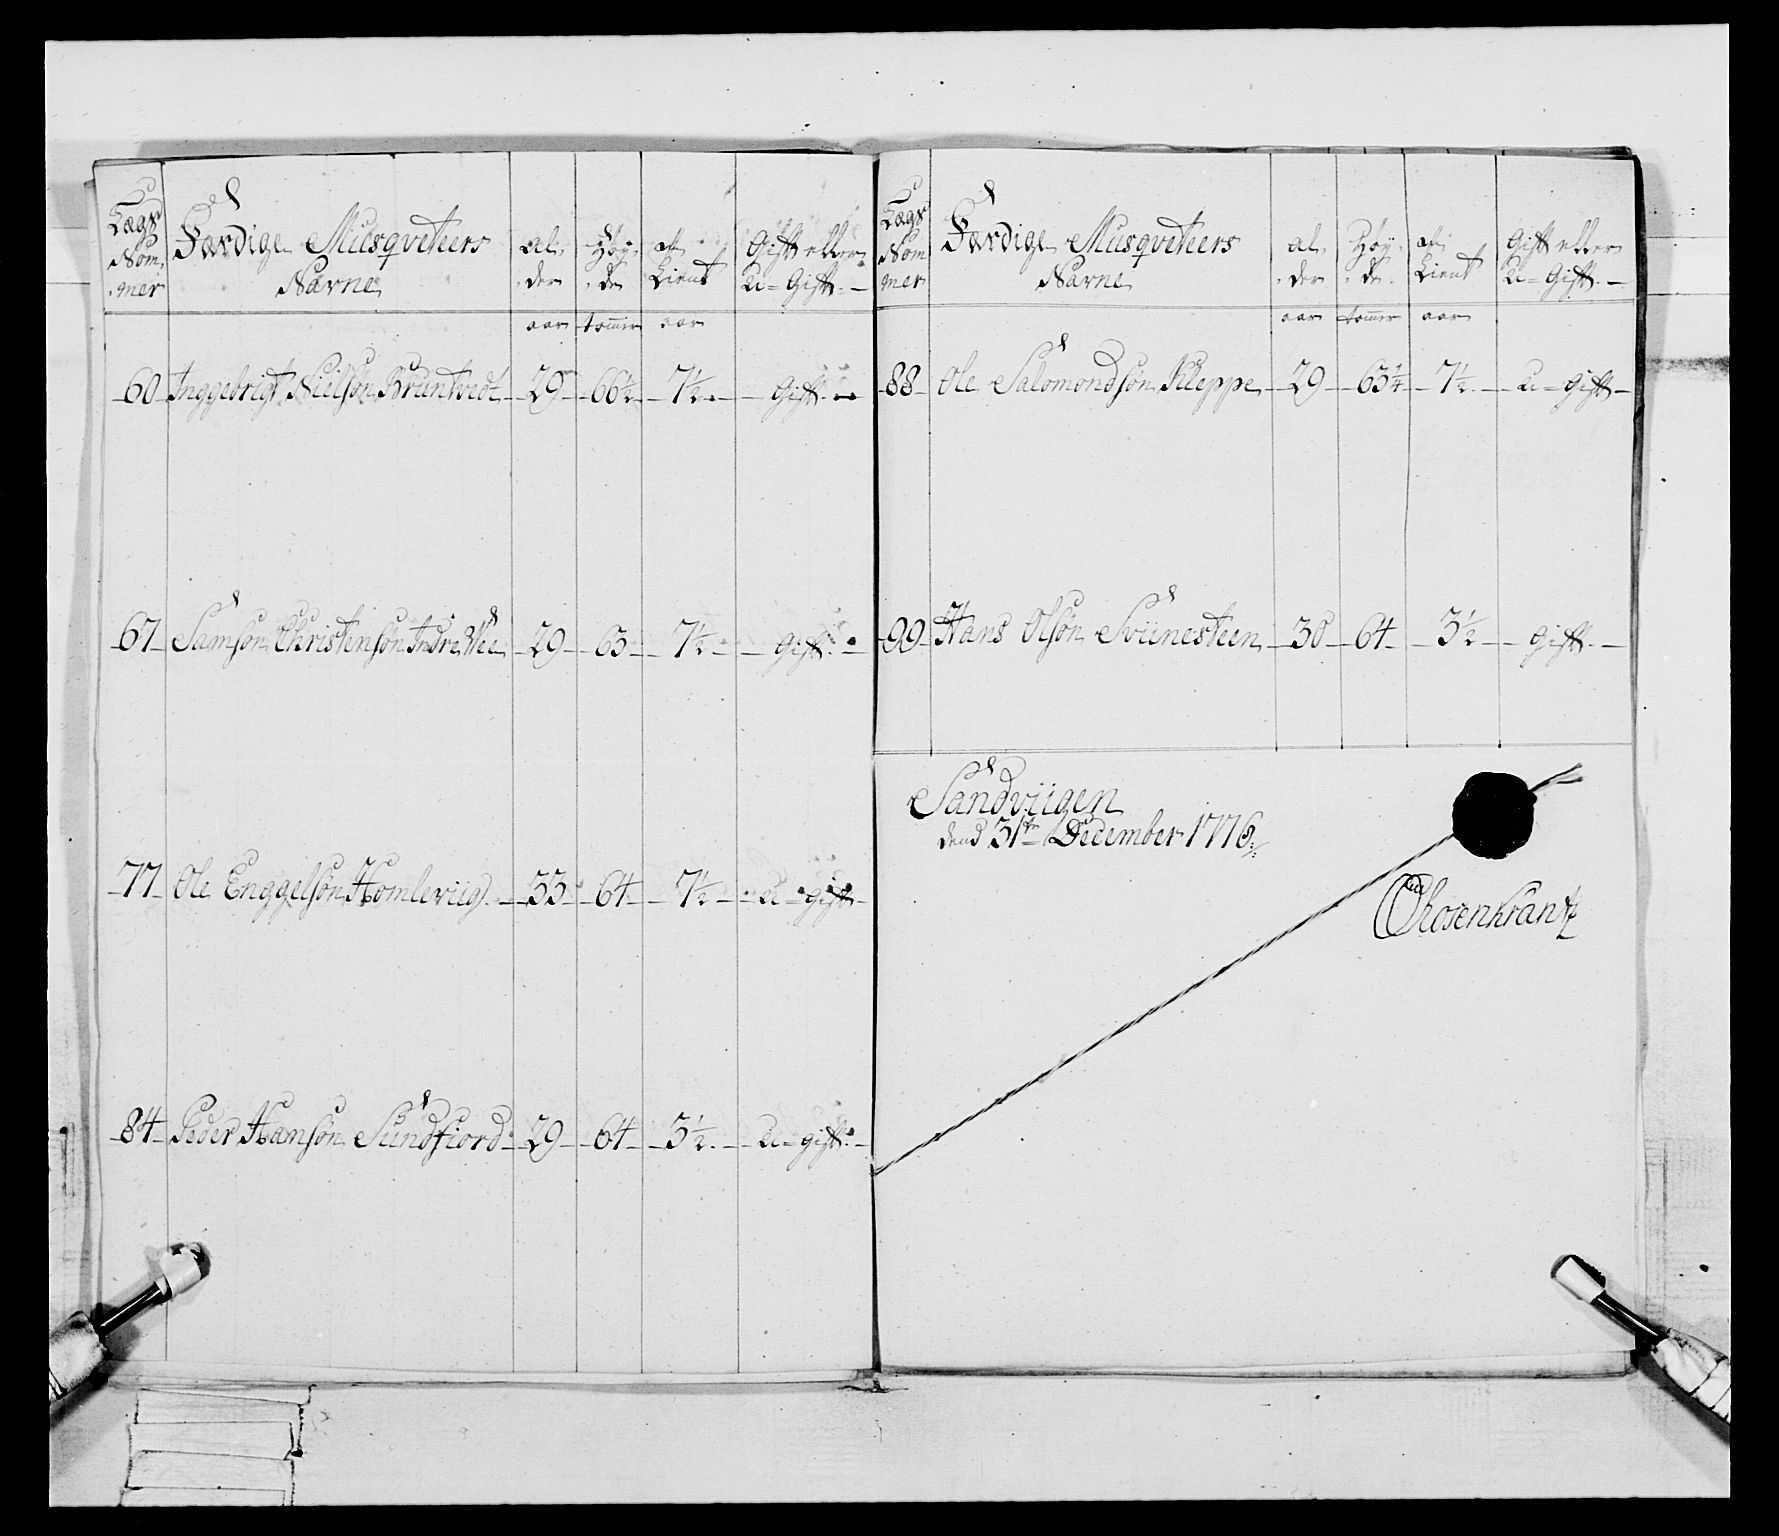 Lægs Nom, mer | Færdige Musqveteers Navne | al, der | Høy, de | af, tient | Gift eller u=Gift.
aar | tommer | aar
60 Inggebrigt Nielsøn Bruntvedt 29 66 1/2 7 1/2 Gift
67 Samson Christensøn Indre Wee 29 63 7 1/2 Gift
77 Ole Enggelsøn Homleviig 33 64 7 1/2 u=gift
84 Peder Hansøn Sundfiord 29 64 3 1/2 u=gift
Lægs Nom mer | Færdige Musqveteers Navne | al, der | Høy, de | af, tient | Gift eller u=Gift.
aar | tommer | aar
88 Ole Salomondsøn Kleppe 29 63 1/4 7 1/2 u=gift
99 Hans Olsøn Sviinesteen 30 64 3 1/2 gift
Sandviigen
dend 31te December 1776
Rosenkrantz